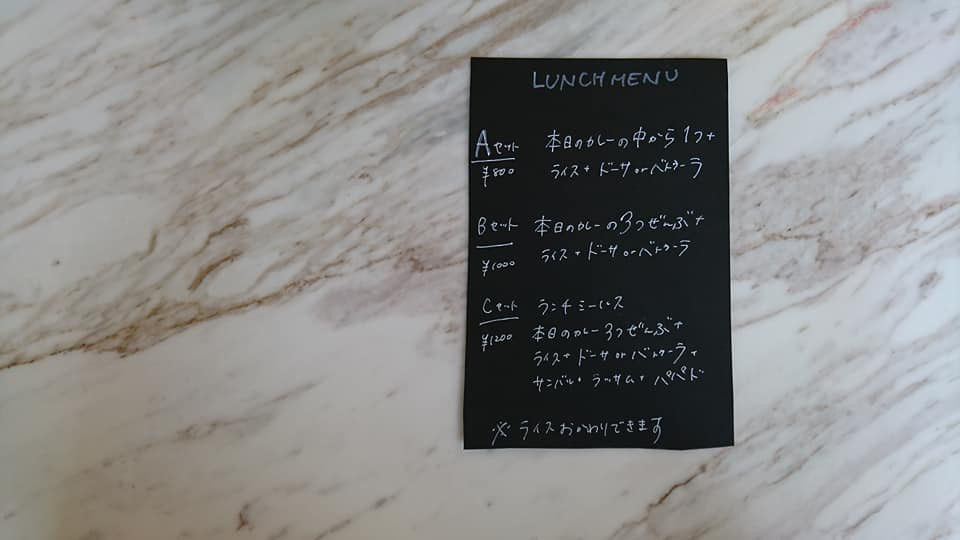 LUNCH MENU
Aセット 本日のカレーの中から1つ+
¥800 ライス+ドーサorバトゥーラ
Bセット 本日のカレーの3つぜんぶ+
¥1000 ライス+ドーサorバトゥーラ
Cセット ランチミールス
¥1200 本日のカレー3つぜんぶ+
ライス+ドーサorバトゥーラ+
サンバル+ラッサム+パパド
※ライスおかわりできます